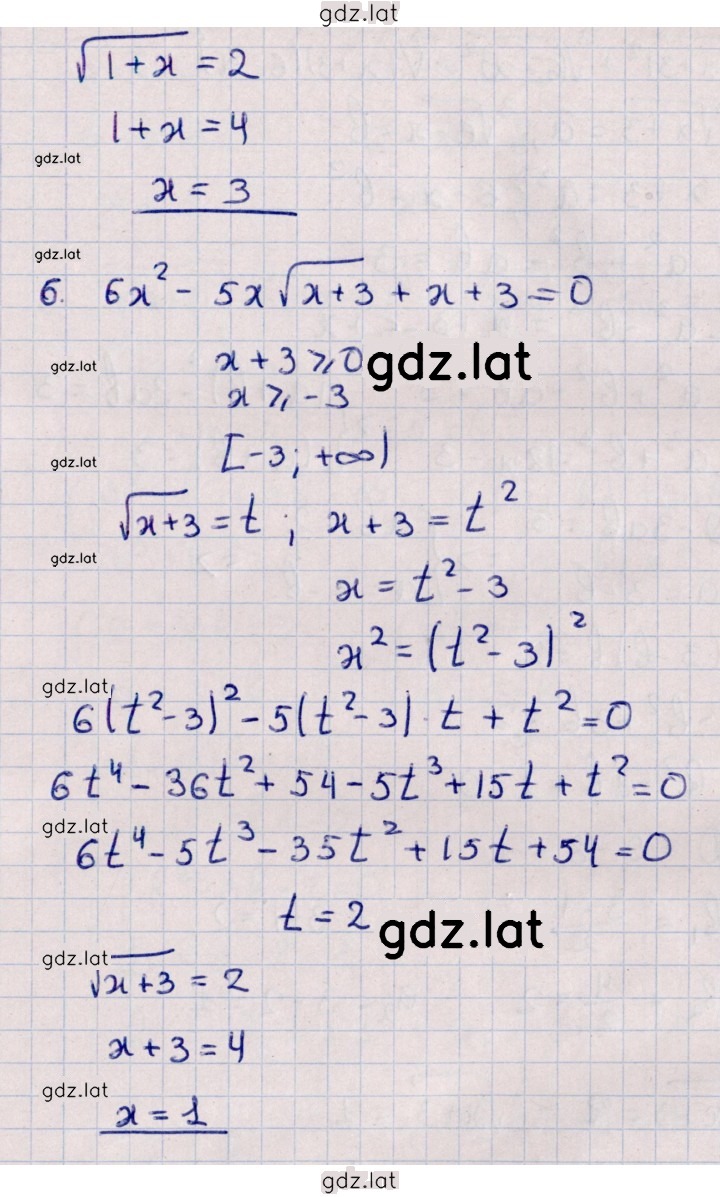 gdz.lat
√(1+x) = 2
1+x = 4
gdz.lat
x = 3
gdz.lat
6. 6x² - 5x√(x+3) + x + 3 = 0
gdz.lat x + 3 ⩾ 0 gdz.lat
x ⩾ -3
gdz.lat [-3; +∞)
√(x+3) = t ; x + 3 = t²
gdz.lat
x = t² - 3
x² = (t² - 3)²
gdz.lat
6(t²-3)² - 5(t²-3) · t + t² = 0
6t⁴ - 36t² + 54 - 5t³ + 15t + t² = 0
gdz.lat
6t⁴ - 5t³ - 35t² + 15t + 54 = 0
t = 2 gdz.lat
gdz.lat
√(x+3) = 2
x + 3 = 4
gdz.lat
x = 1
gdz.lat